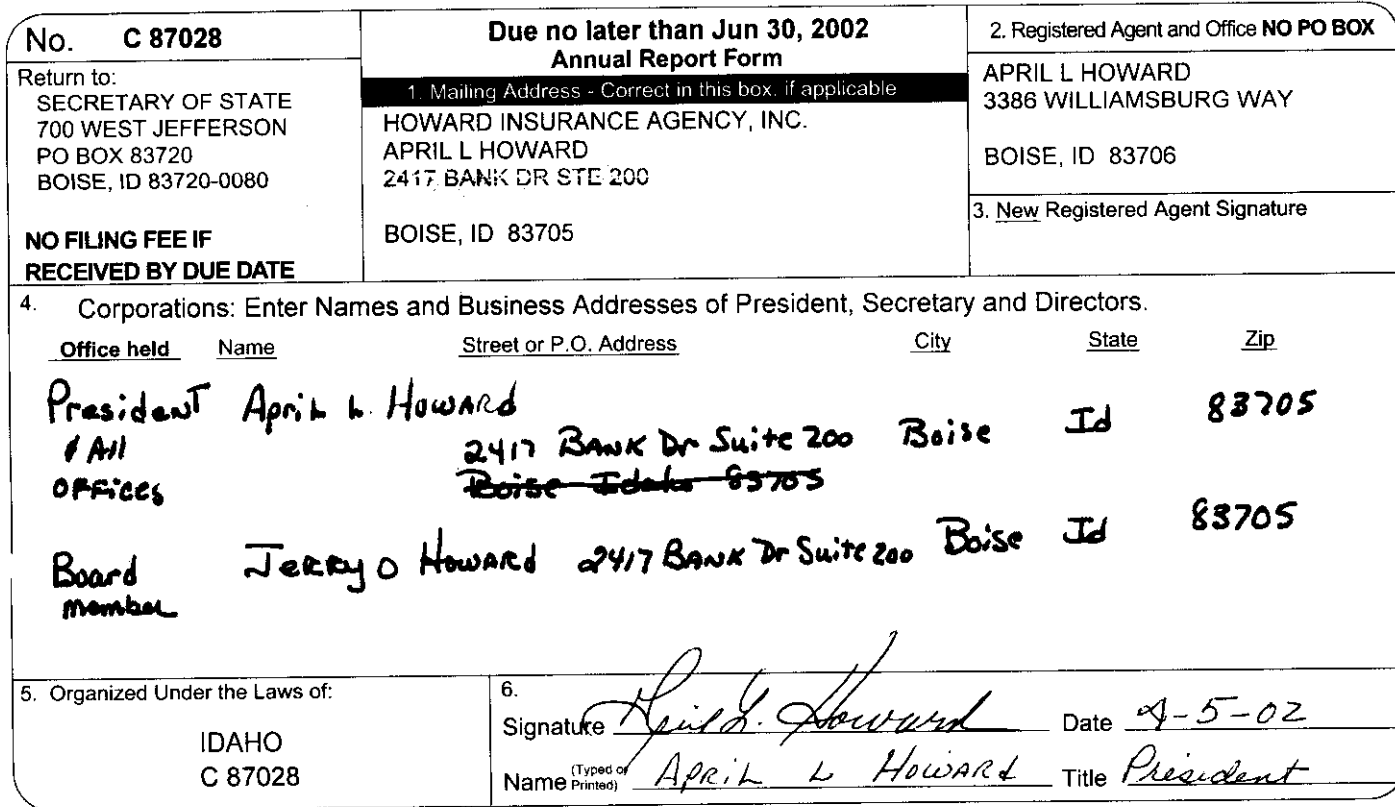 No. C 87028
Return to:
SECRETARY OF STATE
700 WEST JEFFERSON
PO BOX 83720
BOISE, ID 83720-0080
NO FILING FEE IF
RECEIVED BY DUE DATE
Due no later than Jun 30, 2002
Annual Report Form
1. Mailing Address - Correct in this box, if applicable
HOWARD INSURANCE AGENCY, INC.
APRIL L HOWARD
2417 BANK DR STE 200
BOISE, ID 83705
2. Registered Agent and Office NO PO BOX
APRIL L HOWARD
3386 WILLIAMSBURG WAY
BOISE, ID 83706
3. New Registered Agent Signature
4. Corporations: Enter Names and Business Addresses of President, Secretary and Directors.
Office held Name Street or P.O. Address City State Zip
President April L. Howard
& All 2417 Bank Dr Suite 200 Boise Id 83705
offices Boise Idaho 83705
Board Jerry O Howard 2417 Bank Dr Suite 200 Boise Id 83705
member
5. Organized Under the Laws of:
IDAHO
C 87028
6.
Signature April L. Howard Date 4-5-02
Name (Typed or Printed) April L Howard Title President